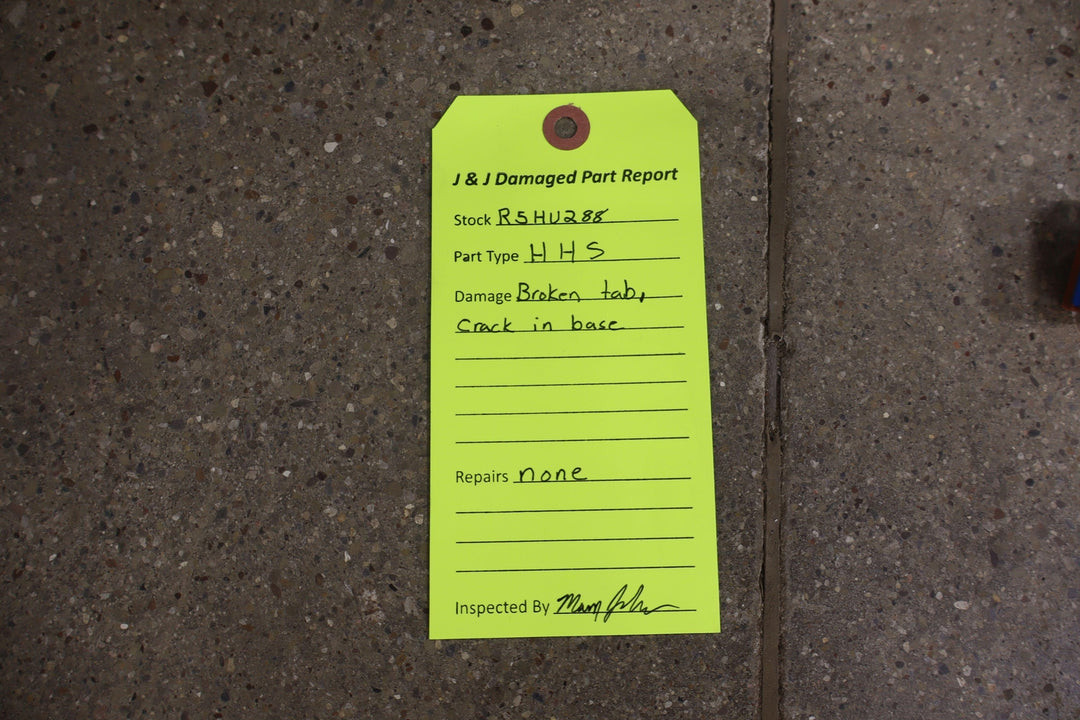 J & J Damaged Part Report
Stock RSHU288
Part Type HHS
Damage Broken tab,
Crack in base
Repairs none
Inspected By